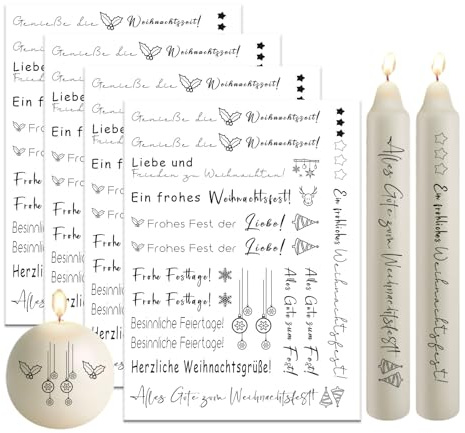 Genieße die Weihnachtszeit!
Genieße die
Liebe
Frieden
Ein frohes
Frohes
Frohes
Frohe
Frohe
Besinnliche
Besinnliche
Herzliche
Alles
Genieße die Weihnachtszeit!
Genieße die Weihnachtszeit!
Genieße die Weihnachtszeit!
Genieße die Weihnachtszeit!
Liebe und
Frieden zu Weihnachten!
Ein frohes Weihnachtsfest!
Frohes Fest der Liebe!
Frohes Fest der Liebe!
Frohe Festtage!
Frohe Festtage!
Besinnliche Feiertage!
Besinnliche Feiertage!
Herzliche Weihnachtsgrüße!
Alles Gute zum Weihnachtsfest!
Alles Gute zum Fest!
Alles Gute zum Fest!
Ein fröhliches Weihnachtsfest!
Alles Gute zum Weihnachtsfest!
Ein fröhliches Weihnachtsfest!